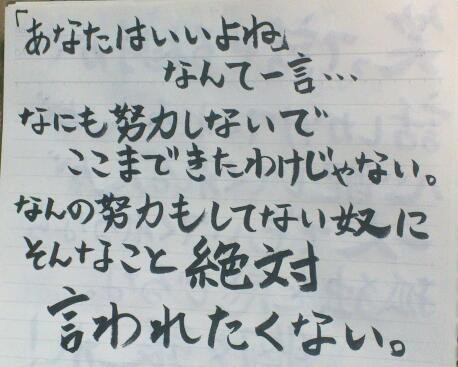 「あなたはいいよね」
なんて一言…
なにも努力しないで
ここまできたわけじゃない。
なんの努力もしてない奴に
そんなこと絶対
言われたくない。